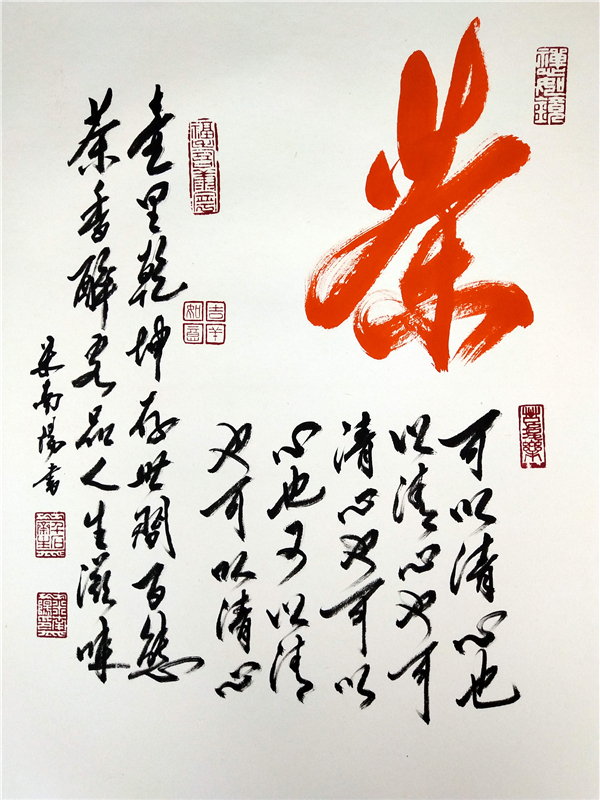 茶
可以清心也
以清心也可
清心也可以
心也可以清
也可以清心
福壽康寧
吉羊如意
壶里乾坤存世间百态
茶香醉客品人生滋味